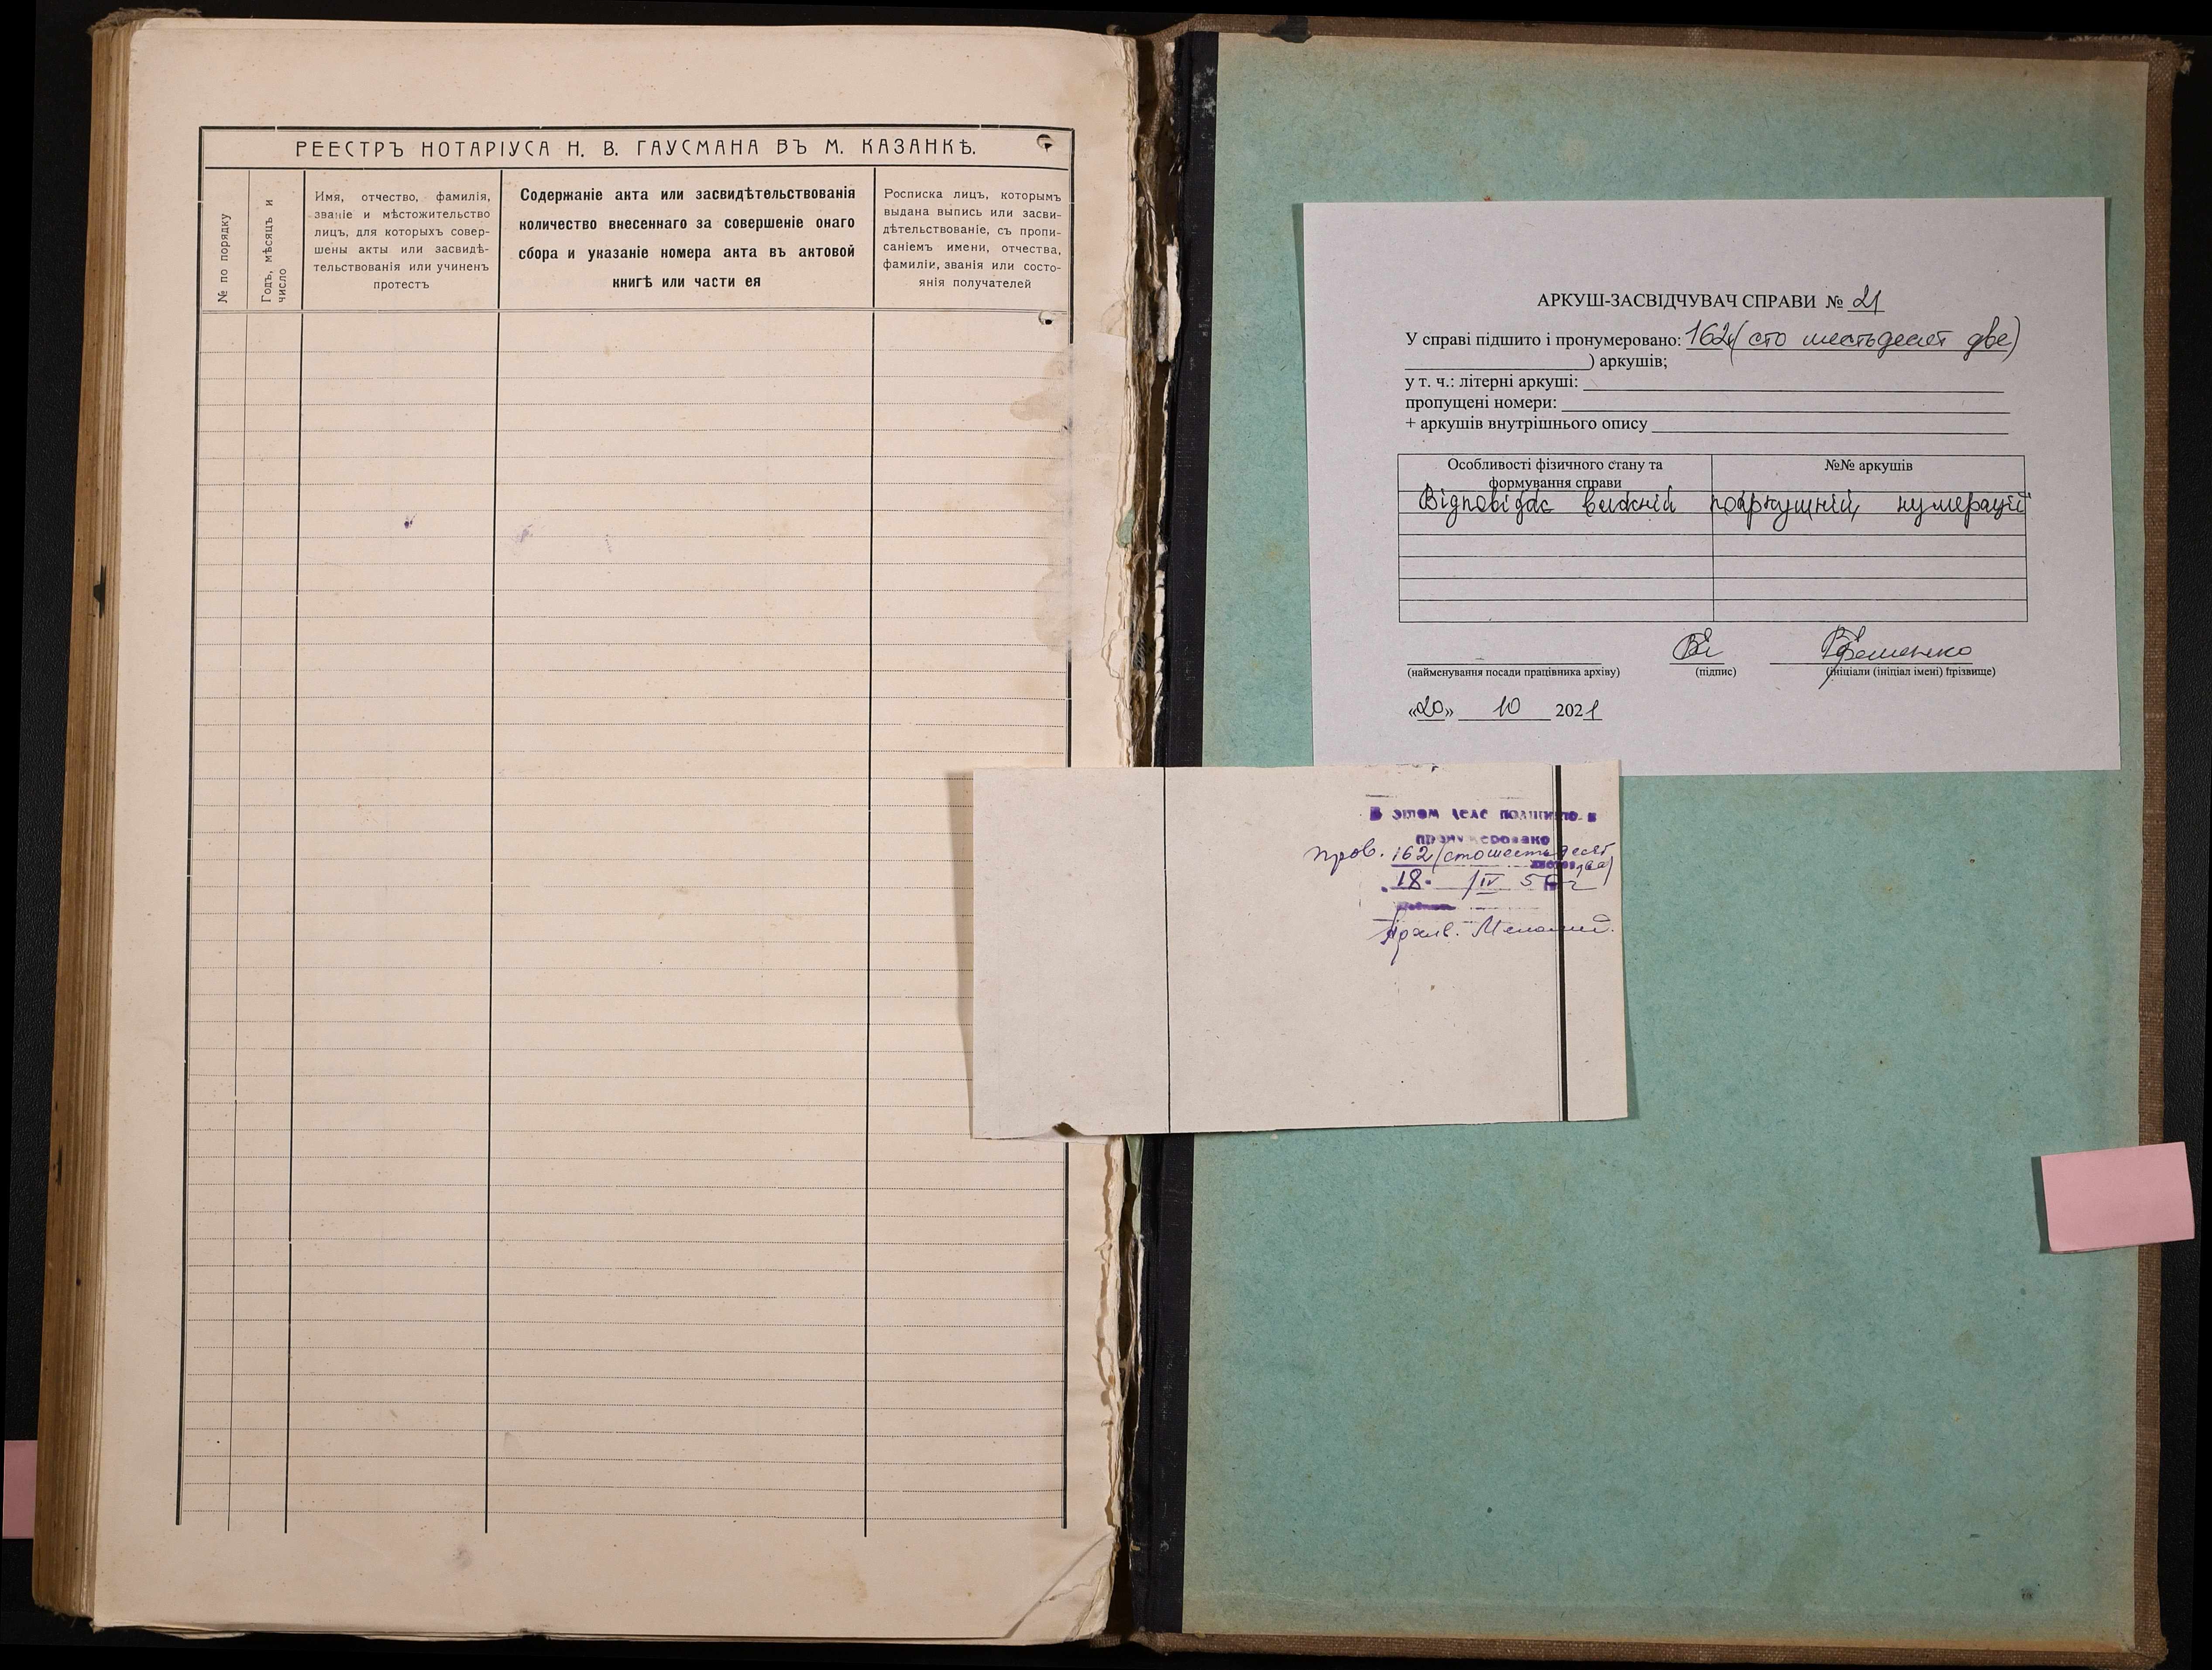 РЕЕСТРЪ НОТАРІУСА Н. В. ГАУСМАНА ВЪ М. КАЗАНКѢ.
№ по порядку
Годъ, мѣсяцъ и
число
Имя, отчество, фамилія,
званіе и мѣстожительство
лицъ, для которыхъ совер-
шены акты или засвидѣ-
тельствованія или учиненъ
протестъ
Содержаніе акта или засвидѣтельствованія
количество внесеннаго за совершеніе онаго
сбора и указаніе номера акта въ актовой
книгѣ или части ея
Росписка лицъ, которымъ
выдана выпись или засви-
дѣтельствованіе, съ пропи-
саніемъ имени, отчества,
фамиліи, званія или состо-
янія получателей
АРКУШ-ЗАСВІДЧУВАЧ СПРАВИ № 21
У справі підшито і пронумеровано: 162 (сто шестьдесят две)
) аркушів;
у т. ч.: літерні аркуші:
пропущені номери:
+ аркушів внутрішнього опису
Особливості фізичного стану та
формування справи
№№ аркушів
Відповідає поаркушній нумерації
(найменування посади працівника архіву)
(підпис)
(ініціали (ініціал імені) прізвище)
«20» 10 2021
В этом деле подшито и
пронумеровано
пров. 162 (сто шестьдесят
листов два)
18. IV 56 г
Архив.